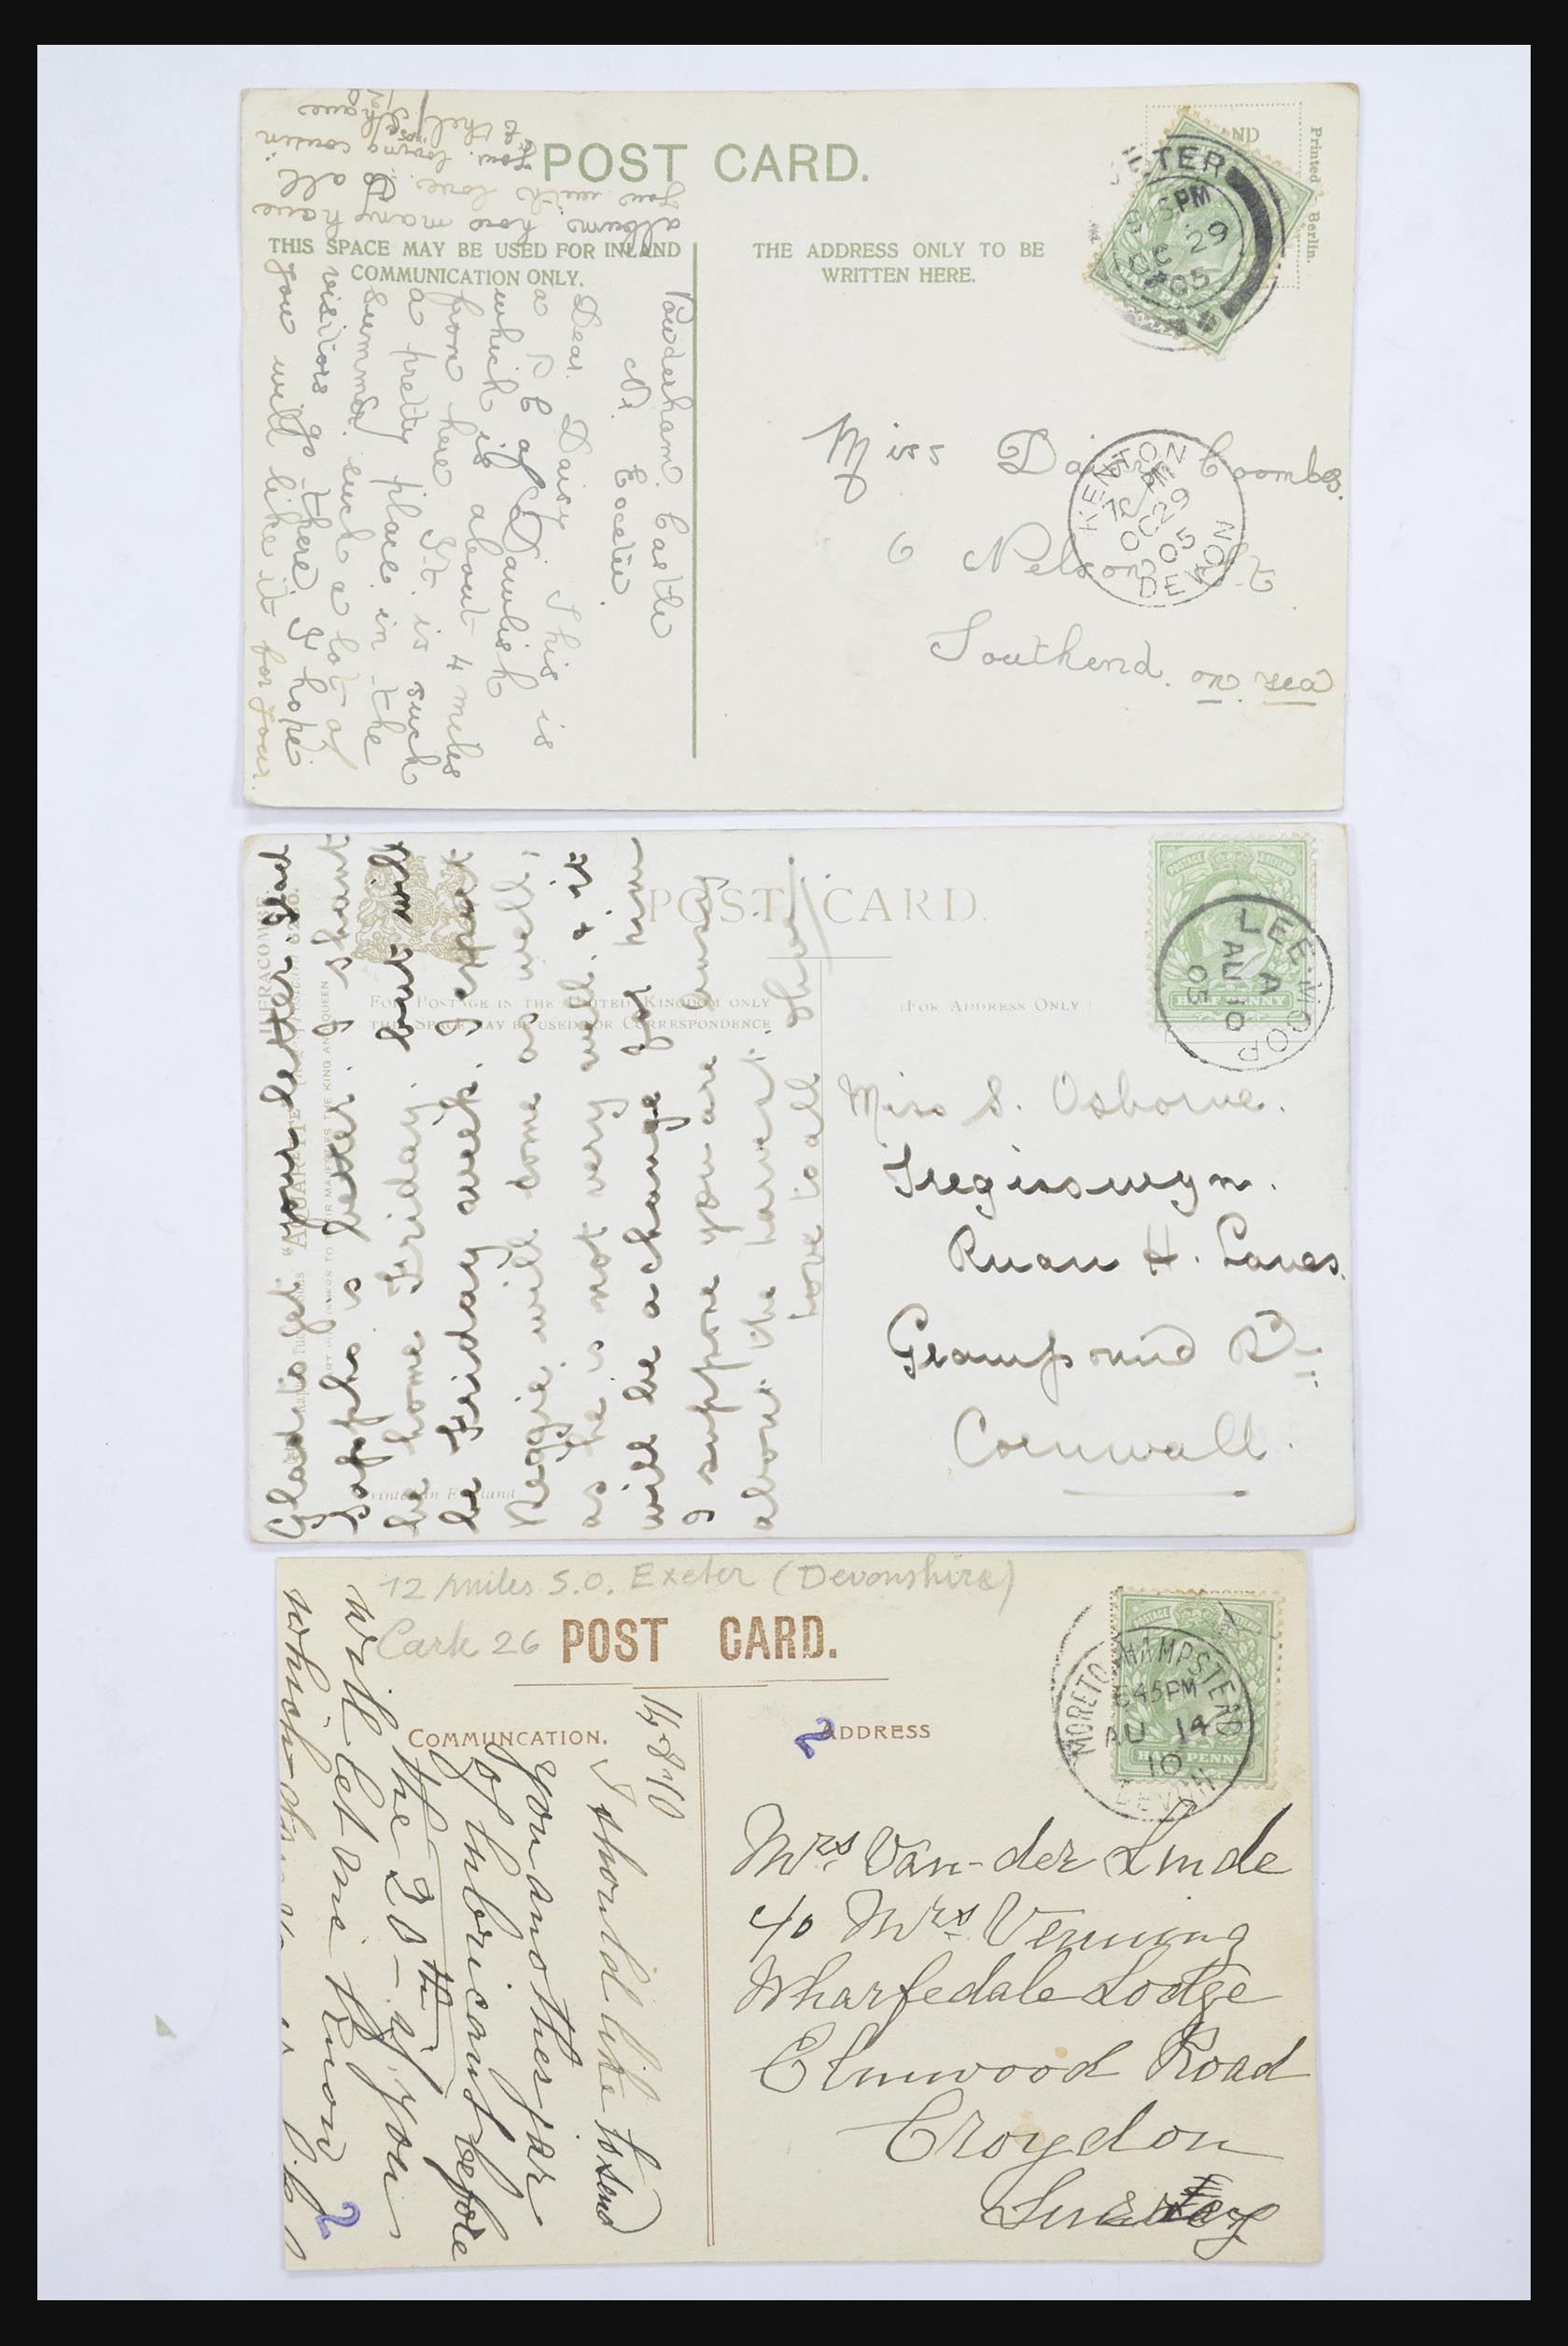 POST CARD.
THIS SPACE MAY BE USED FOR INLAND
COMMUNICATION ONLY.
THE ADDRESS ONLY TO BE
WRITTEN HERE.
Printed
Berlin.
ETER
PM
29
05
KENTON
OC 29
05
DEVON
Miss Daisy Coombes.
6 Nelson St
Southend. on sea
Powderham Castle
Nr Exeter.
Dear Daisy This is
a P C of Dawlish
which is about 4 miles
from here It is such
a pretty place in the
summer such a lot of
visitors go there I hope
you will like it for your
album how many have
you with love to all
your loving cousin
Ethel
POST CARD.
FOR POSTAGE IN THE UNITED KINGDOM ONLY
THIS SPACE MAY BE USED FOR CORRESPONDENCE
(FOR ADDRESS ONLY)
Printed in England
POSTAGE
HALF PENNY
LEE MOOR
A
AU 10
05
Miss S. Osborne.
Tregisswyn.
Ruan H. Lanes.
Grampound Rd.
Cornwall.
Glad to get your letter. Glad
Sappho is better. I shant
be home Friday. but will
be Friday week. I expect
Reggie will come as well;
as he is not very well. & it
will be a change for him
I suppose you are busy
about the harvest.
love to all
12 miles S.O. Exeter (Devonshire)
Cark 26
POST CARD.
COMMUNCATION.
ADDRESS
2
POSTAGE
HALF PENNY
MORETONHAMPSTEAD
645PM
AU 14
10
DEVON
Mrs Van-der Linde
c/o Mrs Venning
Wharfedale Lodge
Elmwood Road
Croydon
Surrey
14-8-10
I should like to send
you another jar
of lubricant before
the 20th if you
will let me know
which
2